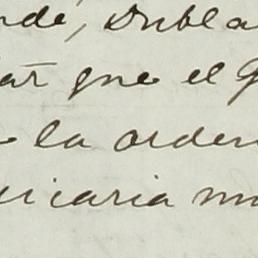 nde, Subla
ar que el G
la orden
iciaria m